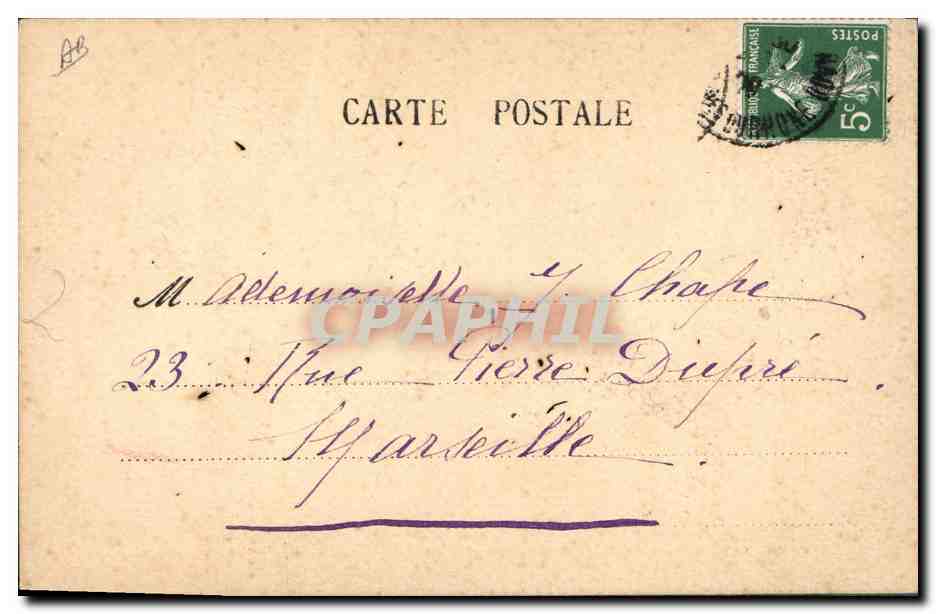 AB
CARTE POSTALE
RÉPUBLIQUE FRANÇAISE
POSTES
5c
Mademoiselle Y Chape
CPAPHIL
23 Rue Pierre Dupré.
Marseille.